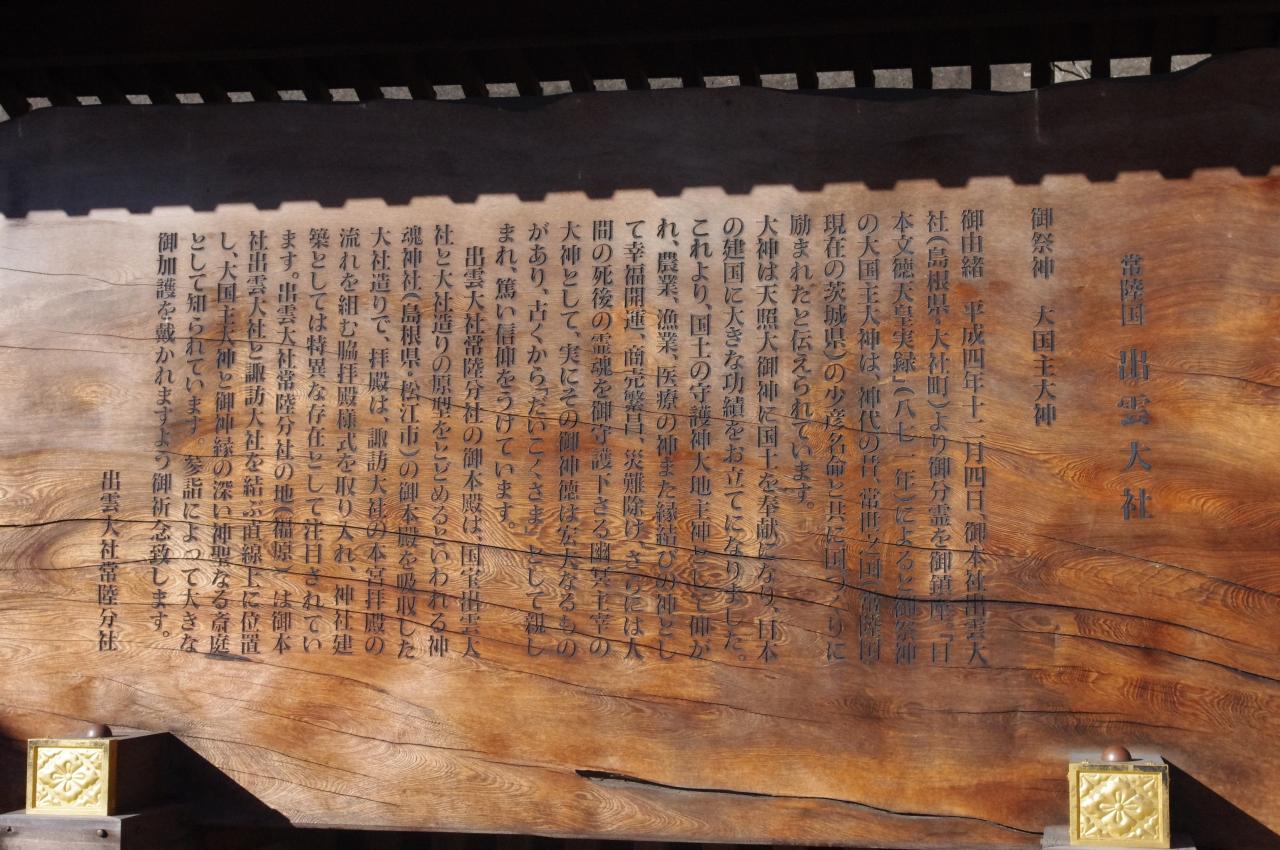 常陸国 出雲大社
御祭神 大国主大神
御由緒 平成四年十二月四日、御本社出雲大
社(島根県・大社町)より御分霊を御鎮座。「日
本文徳天皇実録」(八七一年)によると御祭神
の大国主大神は、神代の昔、常世之国(常陸国
現在の茨城県)の少彦名命と共に国づくりに
励まれたと伝えられています。
大神は天照大御神に国土を奉献になり、日本
の建国に大きな功績をお立てになりました。
これより、国土の守護神大地主神として仰が
れ、農業、漁業、医療の神また縁結びの神とし
て幸福開運、商売繁昌、災難除け、さらには人
間の死後の霊魂を御守護下さる幽冥主宰の
大神として、実にその御神徳は宏大なるもの
があり、古くから“だいこくさま”として親し
まれ、篤い信仰をうけています。
出雲大社常陸分社の御本殿は、国宝出雲大
社と大社造りの原型をとどめるといわれる神
魂神社(島根県・松江市)の御本殿を吸収した
大社造りで、拝殿は、諏訪大社の本宮拝殿の
流れを組む脇拝殿様式を取り入れ、神社建
築としては特異な存在として注目されてい
ます。出雲大社常陸分社の地(福原)は御本
社出雲大社と諏訪大社を結ぶ直線上に位置
し、大国主大神と御神縁の深い神聖なる斎庭
として知られています。参詣によって大きな
御加護を戴かれますよう御祈念致します。
出雲大社常陸分社